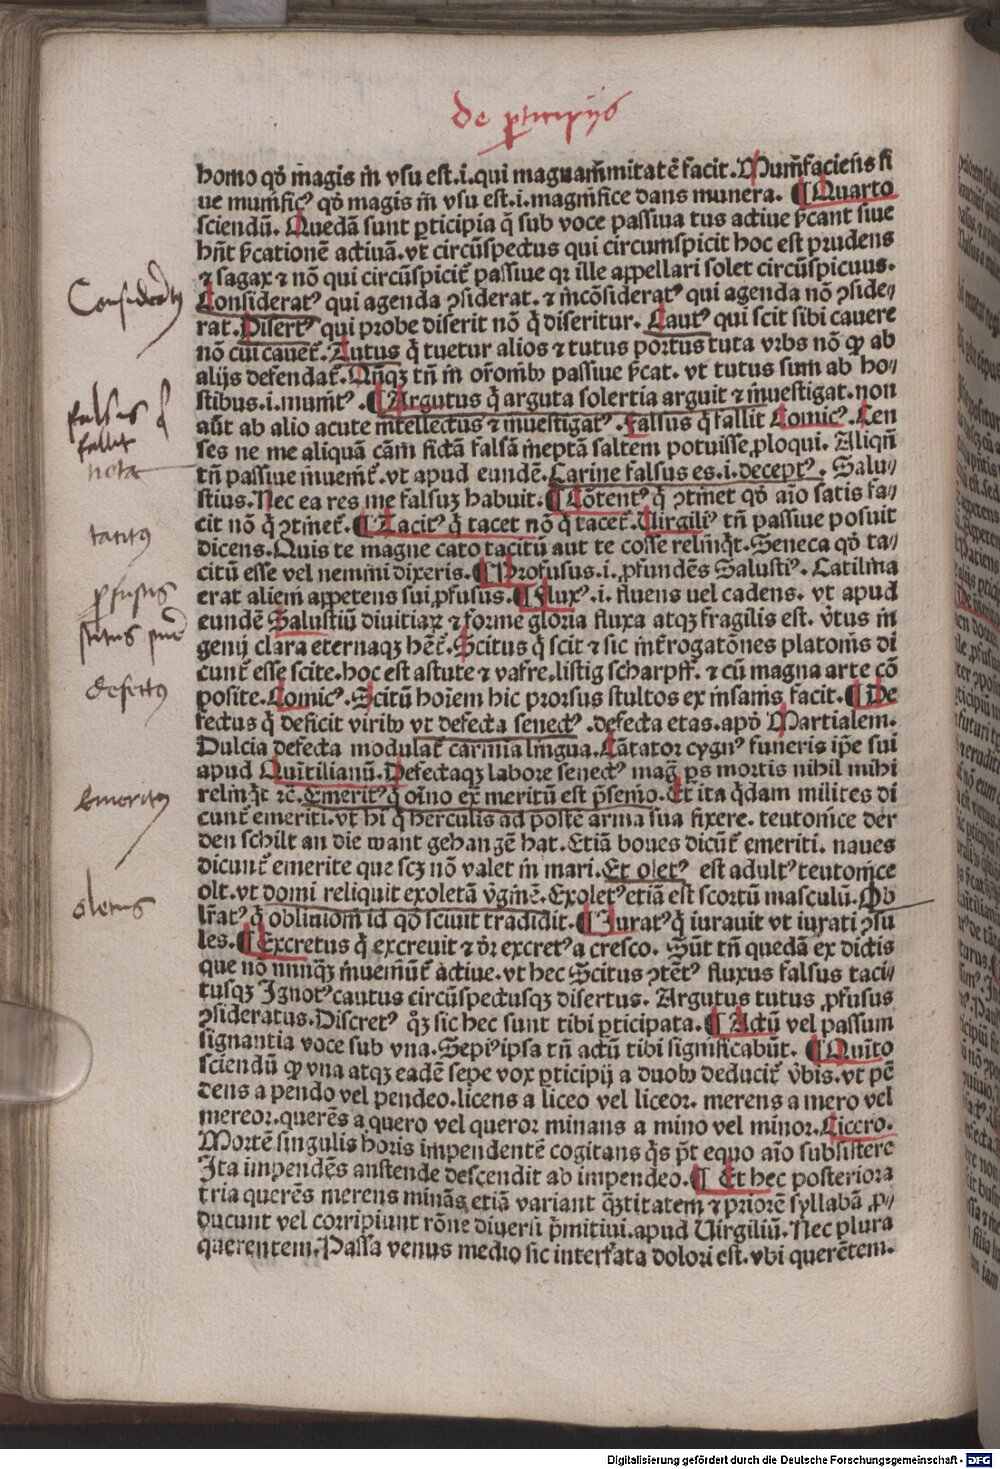 de p̲ticipijs
homo qđ magis in vsu est.i.qui magnanimitatē facit.Munificiens si
ue munific⁹ qđ magis in vsu est.i.magnifice dans munera. ¶Quarto
sciendū. Quedā sunt ꝑticipia q̄ sub voce passiua tus actiue p̄cant siue
hn̄t p̄cationē actiuā.vt circūspectus qui circumspicit hoc est prudens
⁊ sagax ⁊ nō qui circūspicit̄ passiue qꝛ ille appellari solet circūspicuus.
Considerat⁹ qui agenda ꝯsiderat. ⁊ incōsiderat⁹ qui agenda nō ꝯside⸗
rat.Disert⁹ qui probe diserit nō q̄ diseritur. Caut⁹ qui scit sibi cauere
nō cui cauet̄. Tutus q̄ tuetur alios ⁊ tutus portus tuta vrbs nō ꝙ ab
alijs defendat̄. Qn̄qꝫ tn̄ in or̄omībꝰ passiue p̄cat. vt tutus sum ab ho⸗
stibus.i.munit⁹ .¶Argutus q̄ arguta solertia arguit ⁊ inuestigat.non
aūt ab alio acute intellectus ⁊ inuestigat⁹ .Falsus q̄ fallit Comic⁹. Cen
ses ne me aliquā cām fictā falsā ineptā saltem potuisse ꝓloqui. Aliqn̄
tn̄ passiue inuenit̄.vt apud eundē.Carine falsus es.i.decept⁹ . Salu⸗
stius.Nec ea res me falsuꝫ habuit.¶Cōtent⁹ q̄ ꝯtinet qđ aīo satis fa⸗
cit nō q̄ ꝯtinet̄.¶Tacit⁹ q̄ tacet nō q̄ tacet̄.Uirgili⁹ tn̄ passiue posuit
dicens.Quis te magne cato tacitū aut te cosse relinq̄t.Seneca qđ ta⸗
citū esse vel nemini dixeris.¶Profusus.i.ꝓfundēs Salusti⁹. Catilina
erat alieni appetens sui ꝓfusus.¶Flux⁹.i. fluens uel cadens. vt apud
eundē Salustiū diuitiaꝝ ⁊ forme gloria fluxa atqꝫ fragilis est. v̄tus in
genij clara eternaqꝫ het̄.Scitus q̄ scit ⁊ sic int̄rogatōnes platonis di
cunt̄ esse scite.hoc est astute ⁊ vafre.listig scharpff. ⁊ cū magna arte cō
posite.Comic⁹.Scitū hoīem hic prorsus stultos ex insanis facit.¶De
fectus q̄ deficit viribꝰ vt defecta senect⁹ .defecta etas.apđ Martialem.
Dulcia defecta modulat̄ carmina lingua.Cātator cygn⁹ funeris ip̄e sui
apud Quintilianū.Defectaqꝫ labore senect⁹ maḡ ps mortis nihil mihi
relinq̄t ꝛc̄.Emerit⁹ q̄ oīno ex̄ meritū est p̄semio.Et ita q̄dam milites di
cunt̄ emeriti.vt hi q̄ herculis ad postē arma sua fixere. teutonice der
den schilt an die want gehangē hat. Etiā boues dicūt̄ emeriti. naues
dicunt̄ emerite que scꝫ nō valet in mari.Et olet⁹ est adult⁹ teutonice
olt.vt domi reliquit exoletā v̄ginē.Exolet⁹ etiā est scortū masculū.Ob
lit̄at⁹ q̄ obliuioni id qđ sciuit tradidit.¶Jurat⁹ q̄ iurauit vt iurati ꝯsu
les.¶Excretus q̄ excreuit ⁊ dr̄ excret⁹ a cresco. Sūt tn̄ quedā ex dictis
que nō nunqꝫ inueniūt̄ actiue.vt hec Scitus ꝯtēt⁹ fluxus falsus taci⸗
tusqꝫ Ignot⁹ cautus circūspectusqꝫ disertus. Argutus tutus ꝓfusus
ꝯsideratus.Discret⁹ qꝫ sic hec sunt tibi ꝑticipata.¶Actū vel passum
signantia voce sub vna.Sepi⁹ ipsa tn̄ actū tibi significabūt. ¶Quīto
sciendū ꝙ vna atqꝫ eadē sepe vox ꝑticipij a duobꝰ deducit̄ v̄bis.vt pē
dens a pendo vel pendeo.licens a liceo vel liceor. merens a mero vel
mereor.querēs a quero vel queror minans a mino vel minor.Cicero.
Mortē singulis horis impendentē cogitans q̄s pt̄ equo aīo subsistere
Ita impendēs anstende descendit ab impendeo.¶ Et hec posteriora
tria querēs merens minās etiā variant q̄ntitatem ⁊ priorē syllabā ꝓ⸗
ducunt vel corripiunt rōne diuersi p̄mitiui.apud Uirgiliū.Nec plura
querentem.Passa venus medio sic interfata dolori est.vbi querētem.
Consideratus
falsus q̄
fallit
nota
tacitus
ꝓfusus
defectus
Emeritus
oletus
Digitalisierung gefördert durch die Deutsche Forschungsgemeinschaft - DFG